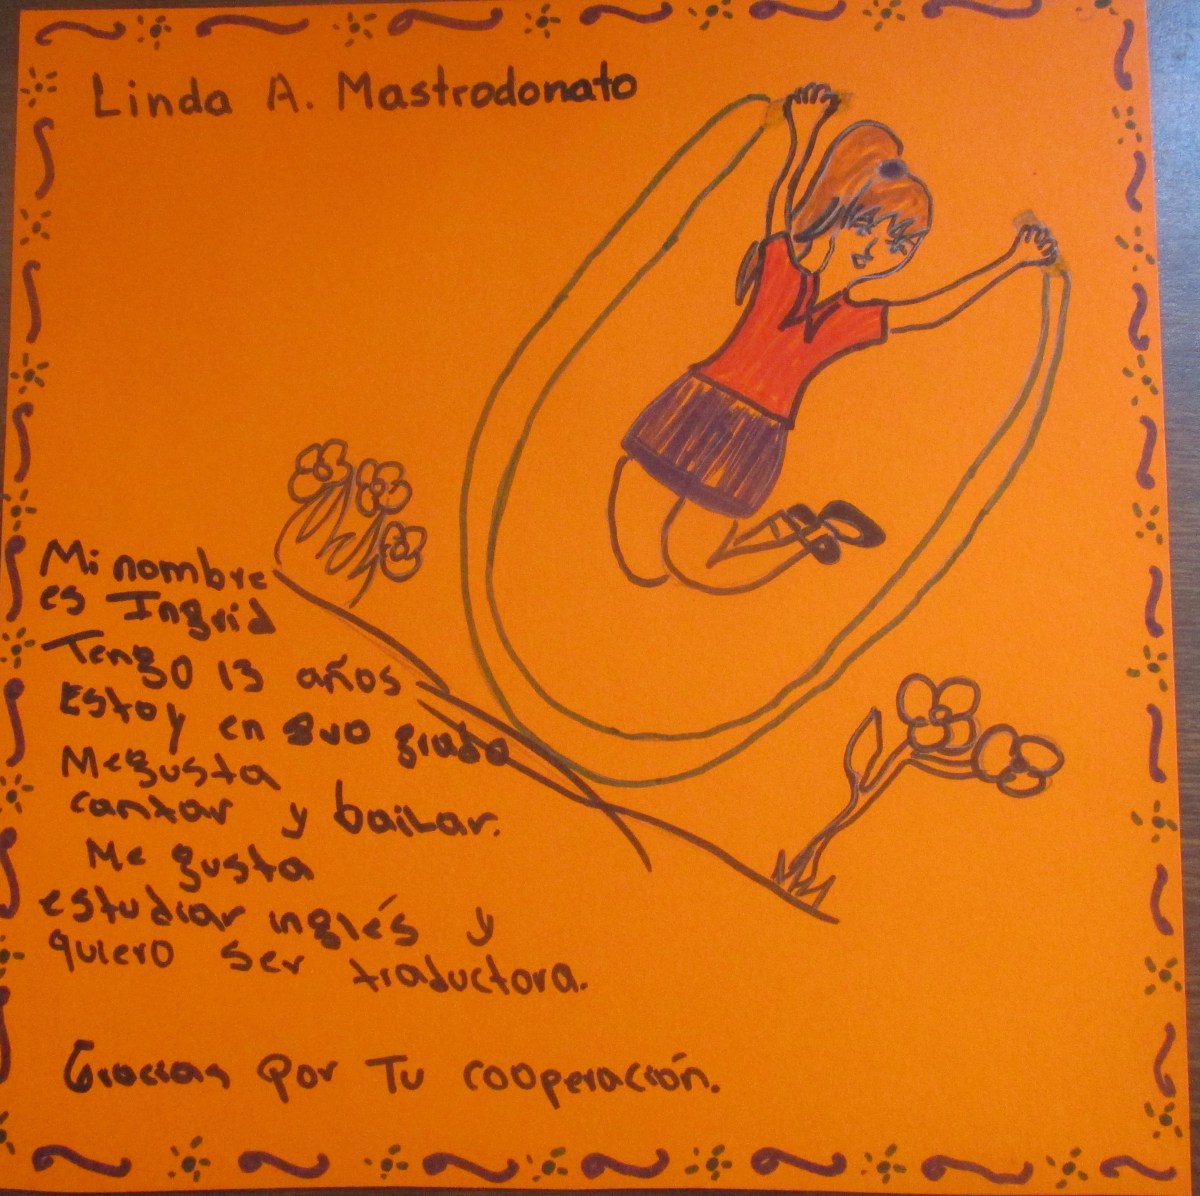 Linda A. Mastrodonato
Mi nombre
es Ingrid
Tengo 13 años
Estoy en 8vo grado
Me gusta
cantar y bailar.
Me gusta
estudiar inglés y
quiero ser traductora.
Gracias por Tu cooperación.